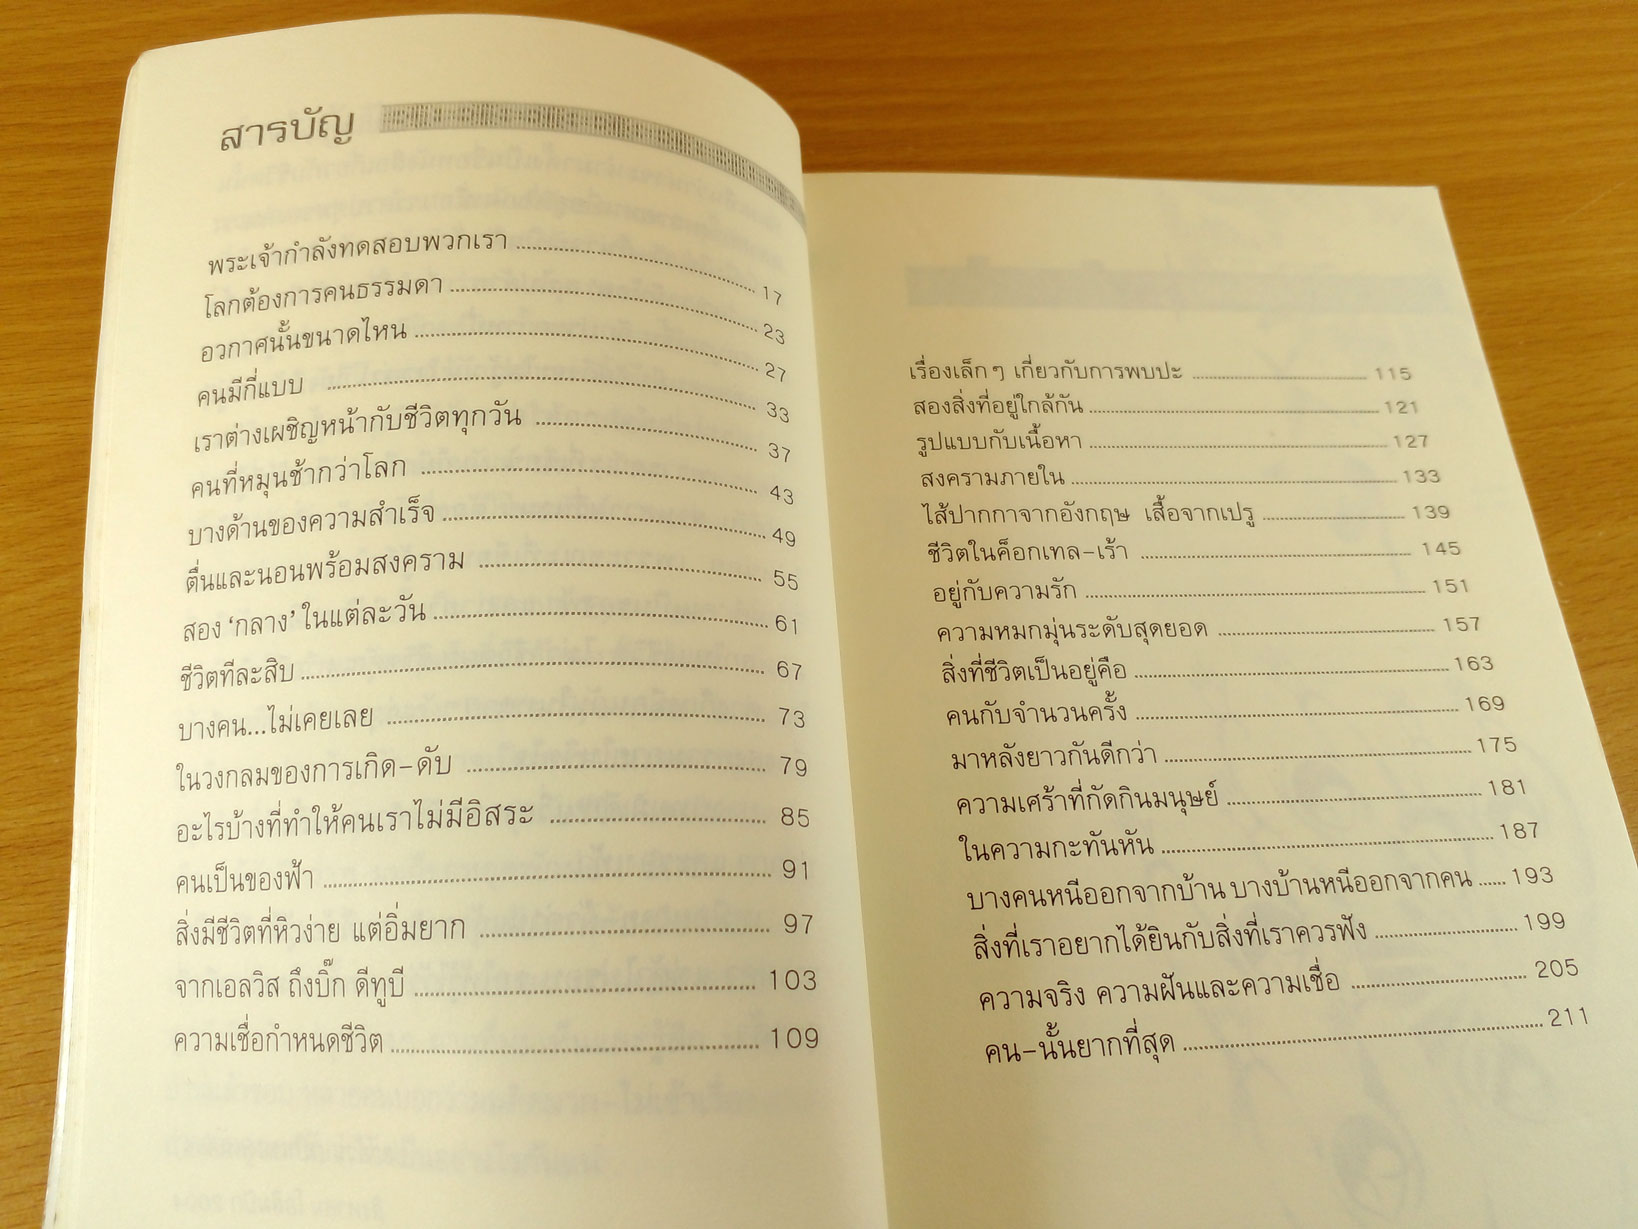 สารบัญ
พระเจ้ากำลังทดสอบพวกเรา 17
โลกต้องการคนธรรมดา 23
อวกาศนั้นขนาดไหน 27
คนมีกี่แบบ 33
เราต่างเผชิญหน้ากับชีวิตทุกวัน 37
คนที่หมุนช้ากว่าโลก 43
บางด้านของความสำเร็จ 49
ตื่นและนอนพร้อมสงคราม 55
สอง ‘กลาง’ ในแต่ละวัน 61
ชีวิตทีละสิบ 67
บางคน...ไม่เคยเลย 73
ในวงกลมของการเกิด-ดับ 79
อะไรบ้างที่ทำให้คนเราไม่มีอิสระ 85
คนเป็นของฟ้า 91
สิ่งมีชีวิตที่หิวง่าย แต่อิ่มยาก 97
จากเอลวิส ถึงบิ๊ก ดีทูบี 103
ความเชื่อกำหนดชีวิต 109
เรื่องเล็กๆ เกี่ยวกับการพบปะ 115
สองสิ่งที่อยู่ใกล้กัน 121
รูปแบบกับเนื้อหา 127
สงครามภายใน 133
ไส้ปากกาจากอังกฤษ เสื้อจากเปรู 139
ชีวิตในค็อกเทล-เร้า 145
อยู่กับความรัก 151
ความหมกมุ่นระดับสุดยอด 157
สิ่งที่ชีวิตเป็นอยู่คือ 163
คนกับจำนวนครั้ง 169
มาหลังยาวกันดีกว่า 175
ความเศร้าที่กัดกินมนุษย์ 181
ในความกะทันหัน 187
บางคนหนีออกจากบ้าน บางบ้านหนีออกจากคน 193
สิ่งที่เราอยากได้ยินกับสิ่งที่เราควรฟัง 199
ความจริง ความฝันและความเชื่อ 205
คน-นั้นยากที่สุด 211